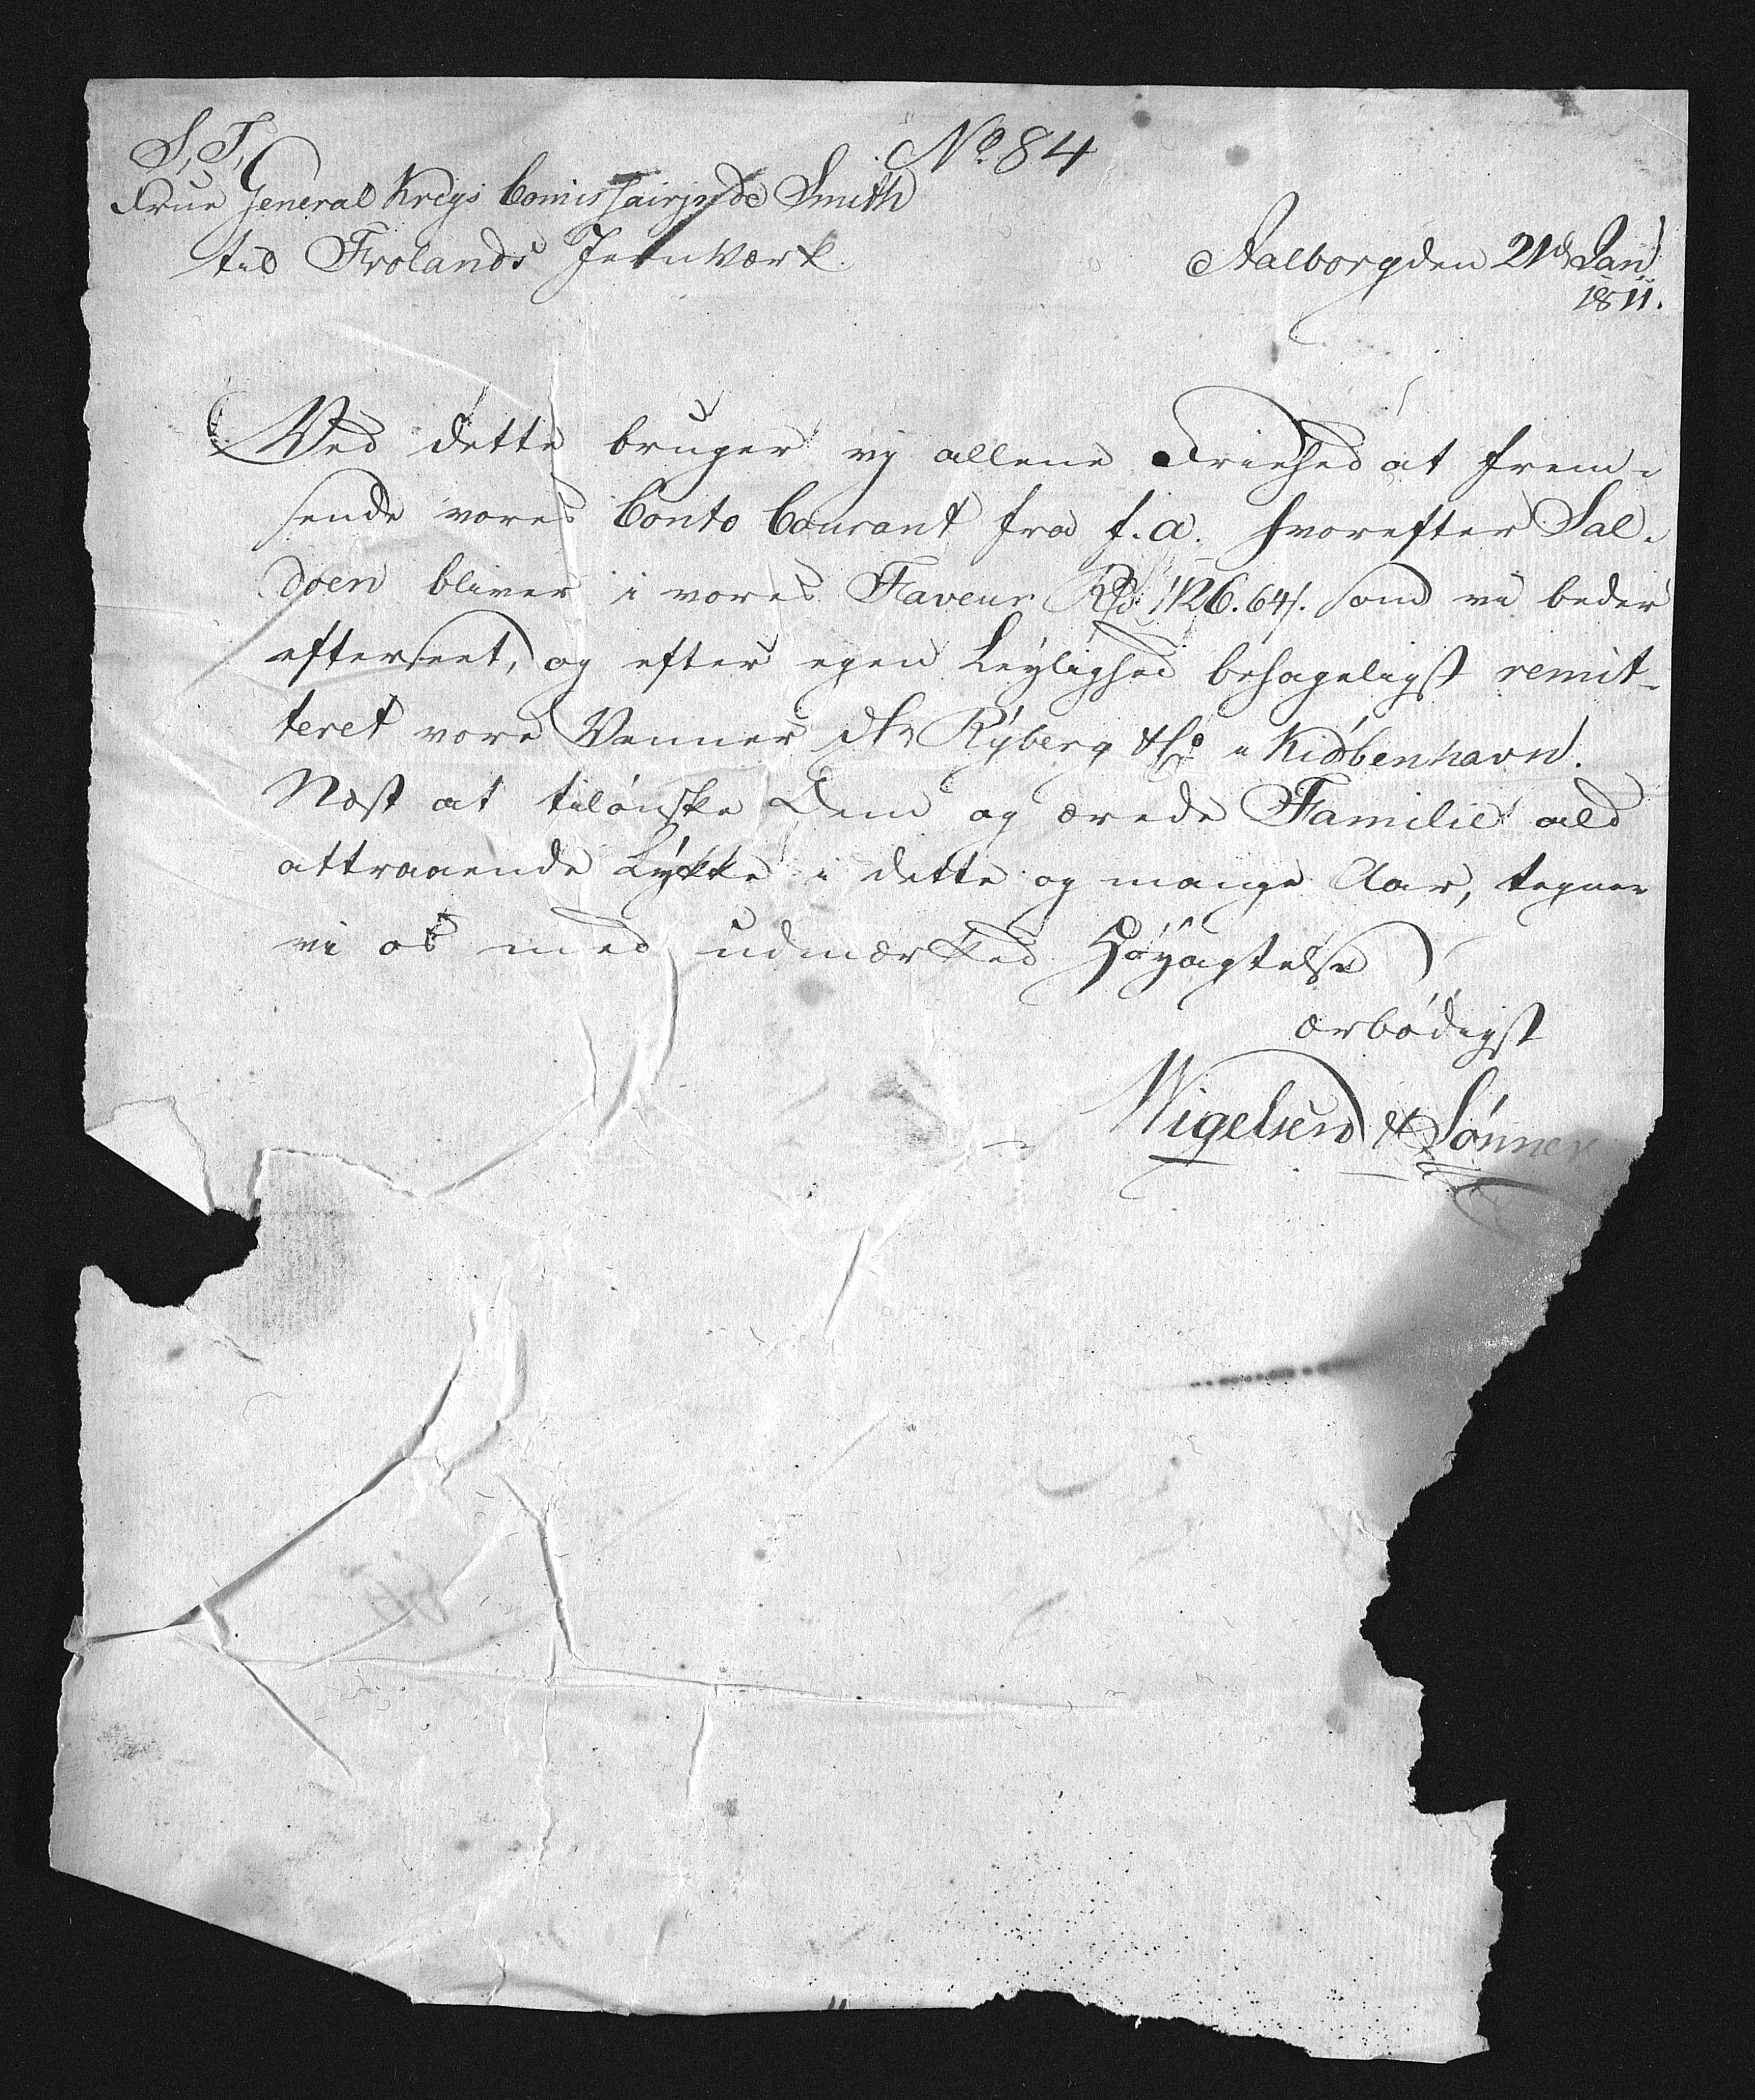 S. T. No 84
Frue General Krigs Comissairinde Smith
til Frolands Jernværk.
Aalborg den 21de Janu
1811.
Ved dette bruger vj allene Friehed at frem-
sende vores Conto Courant fra f. a. hvorefter Sal-
doen bliver i vores Faveur Rd 1126.64s. som vi beder
efterseet, og efter egen Leylighed behageligst remit-
teret vore Venner Hr Ryberg & Co i Kiöbenhavn.
Næst at tilönske Dem og ærede Familie ald
attraaende Lykke i dette og mange Aar, tegner
vi os med udmærked Höyagtelse
ærbödigst
Wigelsen & Sönner